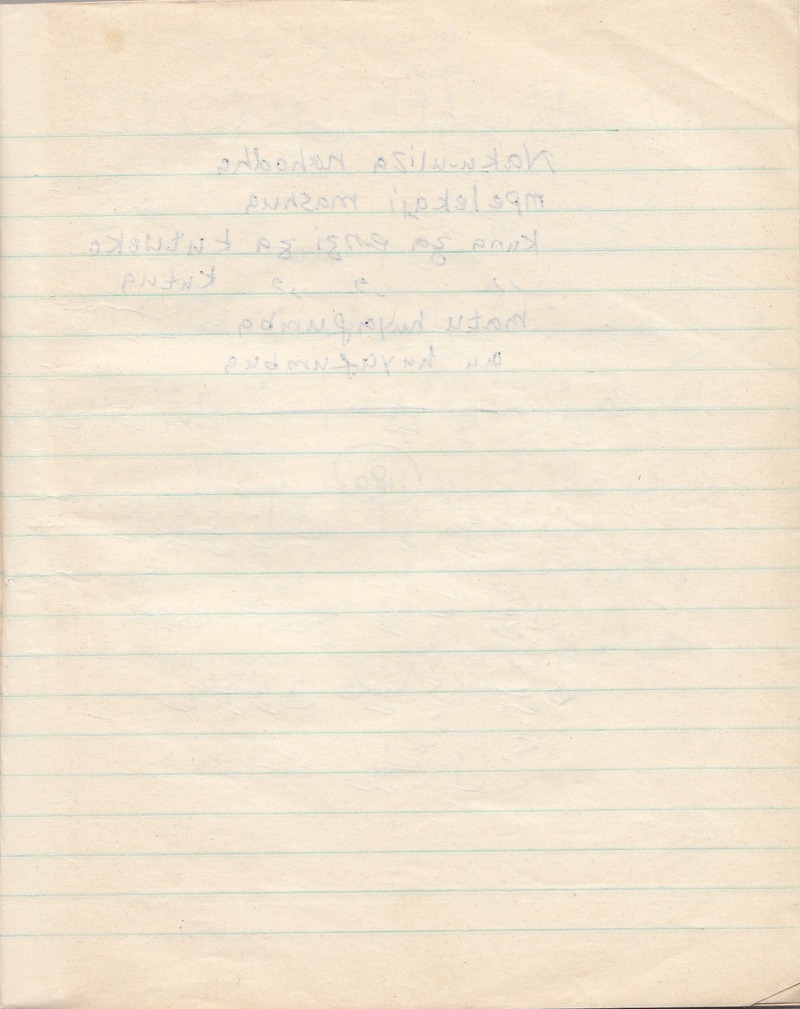 Naku-uliza nahodha
mpelekaji mashua
kuna za enzi za kutweka
" " " kutua
matu huyafumba
au huyafumbua